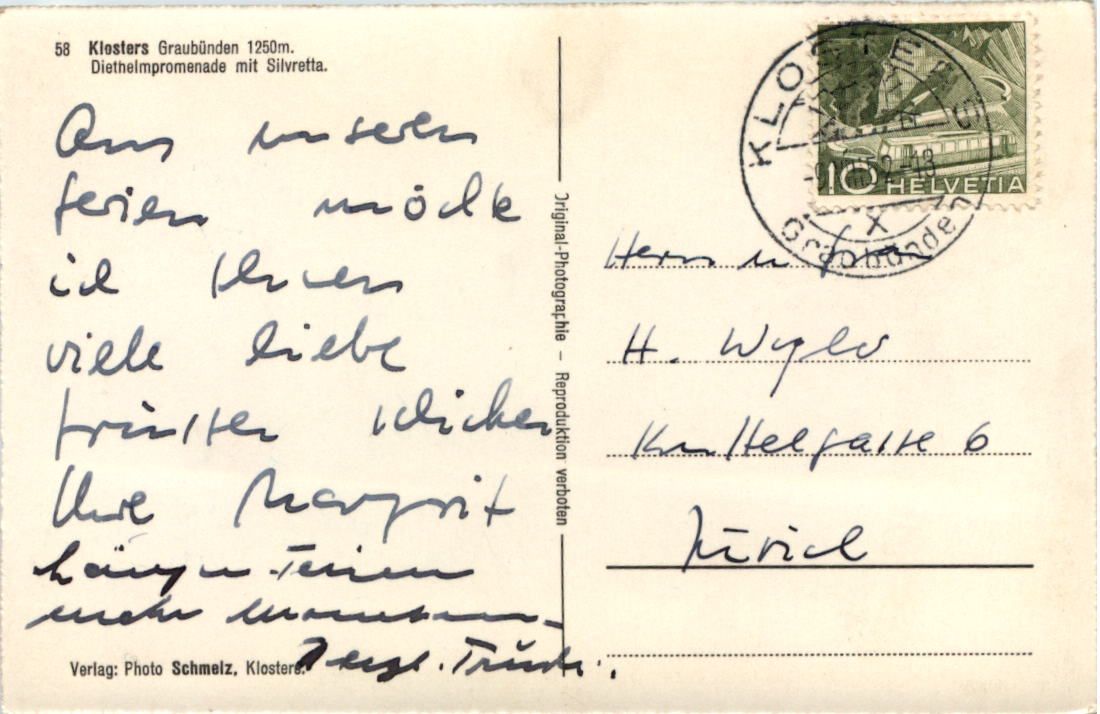 58 Klosters Graubünden 1250m.
Diethelmpromenade mit Silvretta.
Aus unseren
Ferien möchte
ich Ihnen
viele liebe
Grüsse schicken
Ihre Margrit
Original-Photographie – Reproduktion verboten
Verlag: Photo Schmelz, Klosters.
KLOSTERS
Graubünden
10 HELVETIA
Herrn u. Frau
H. Wyler
Kunstelgasse 6
Zürich